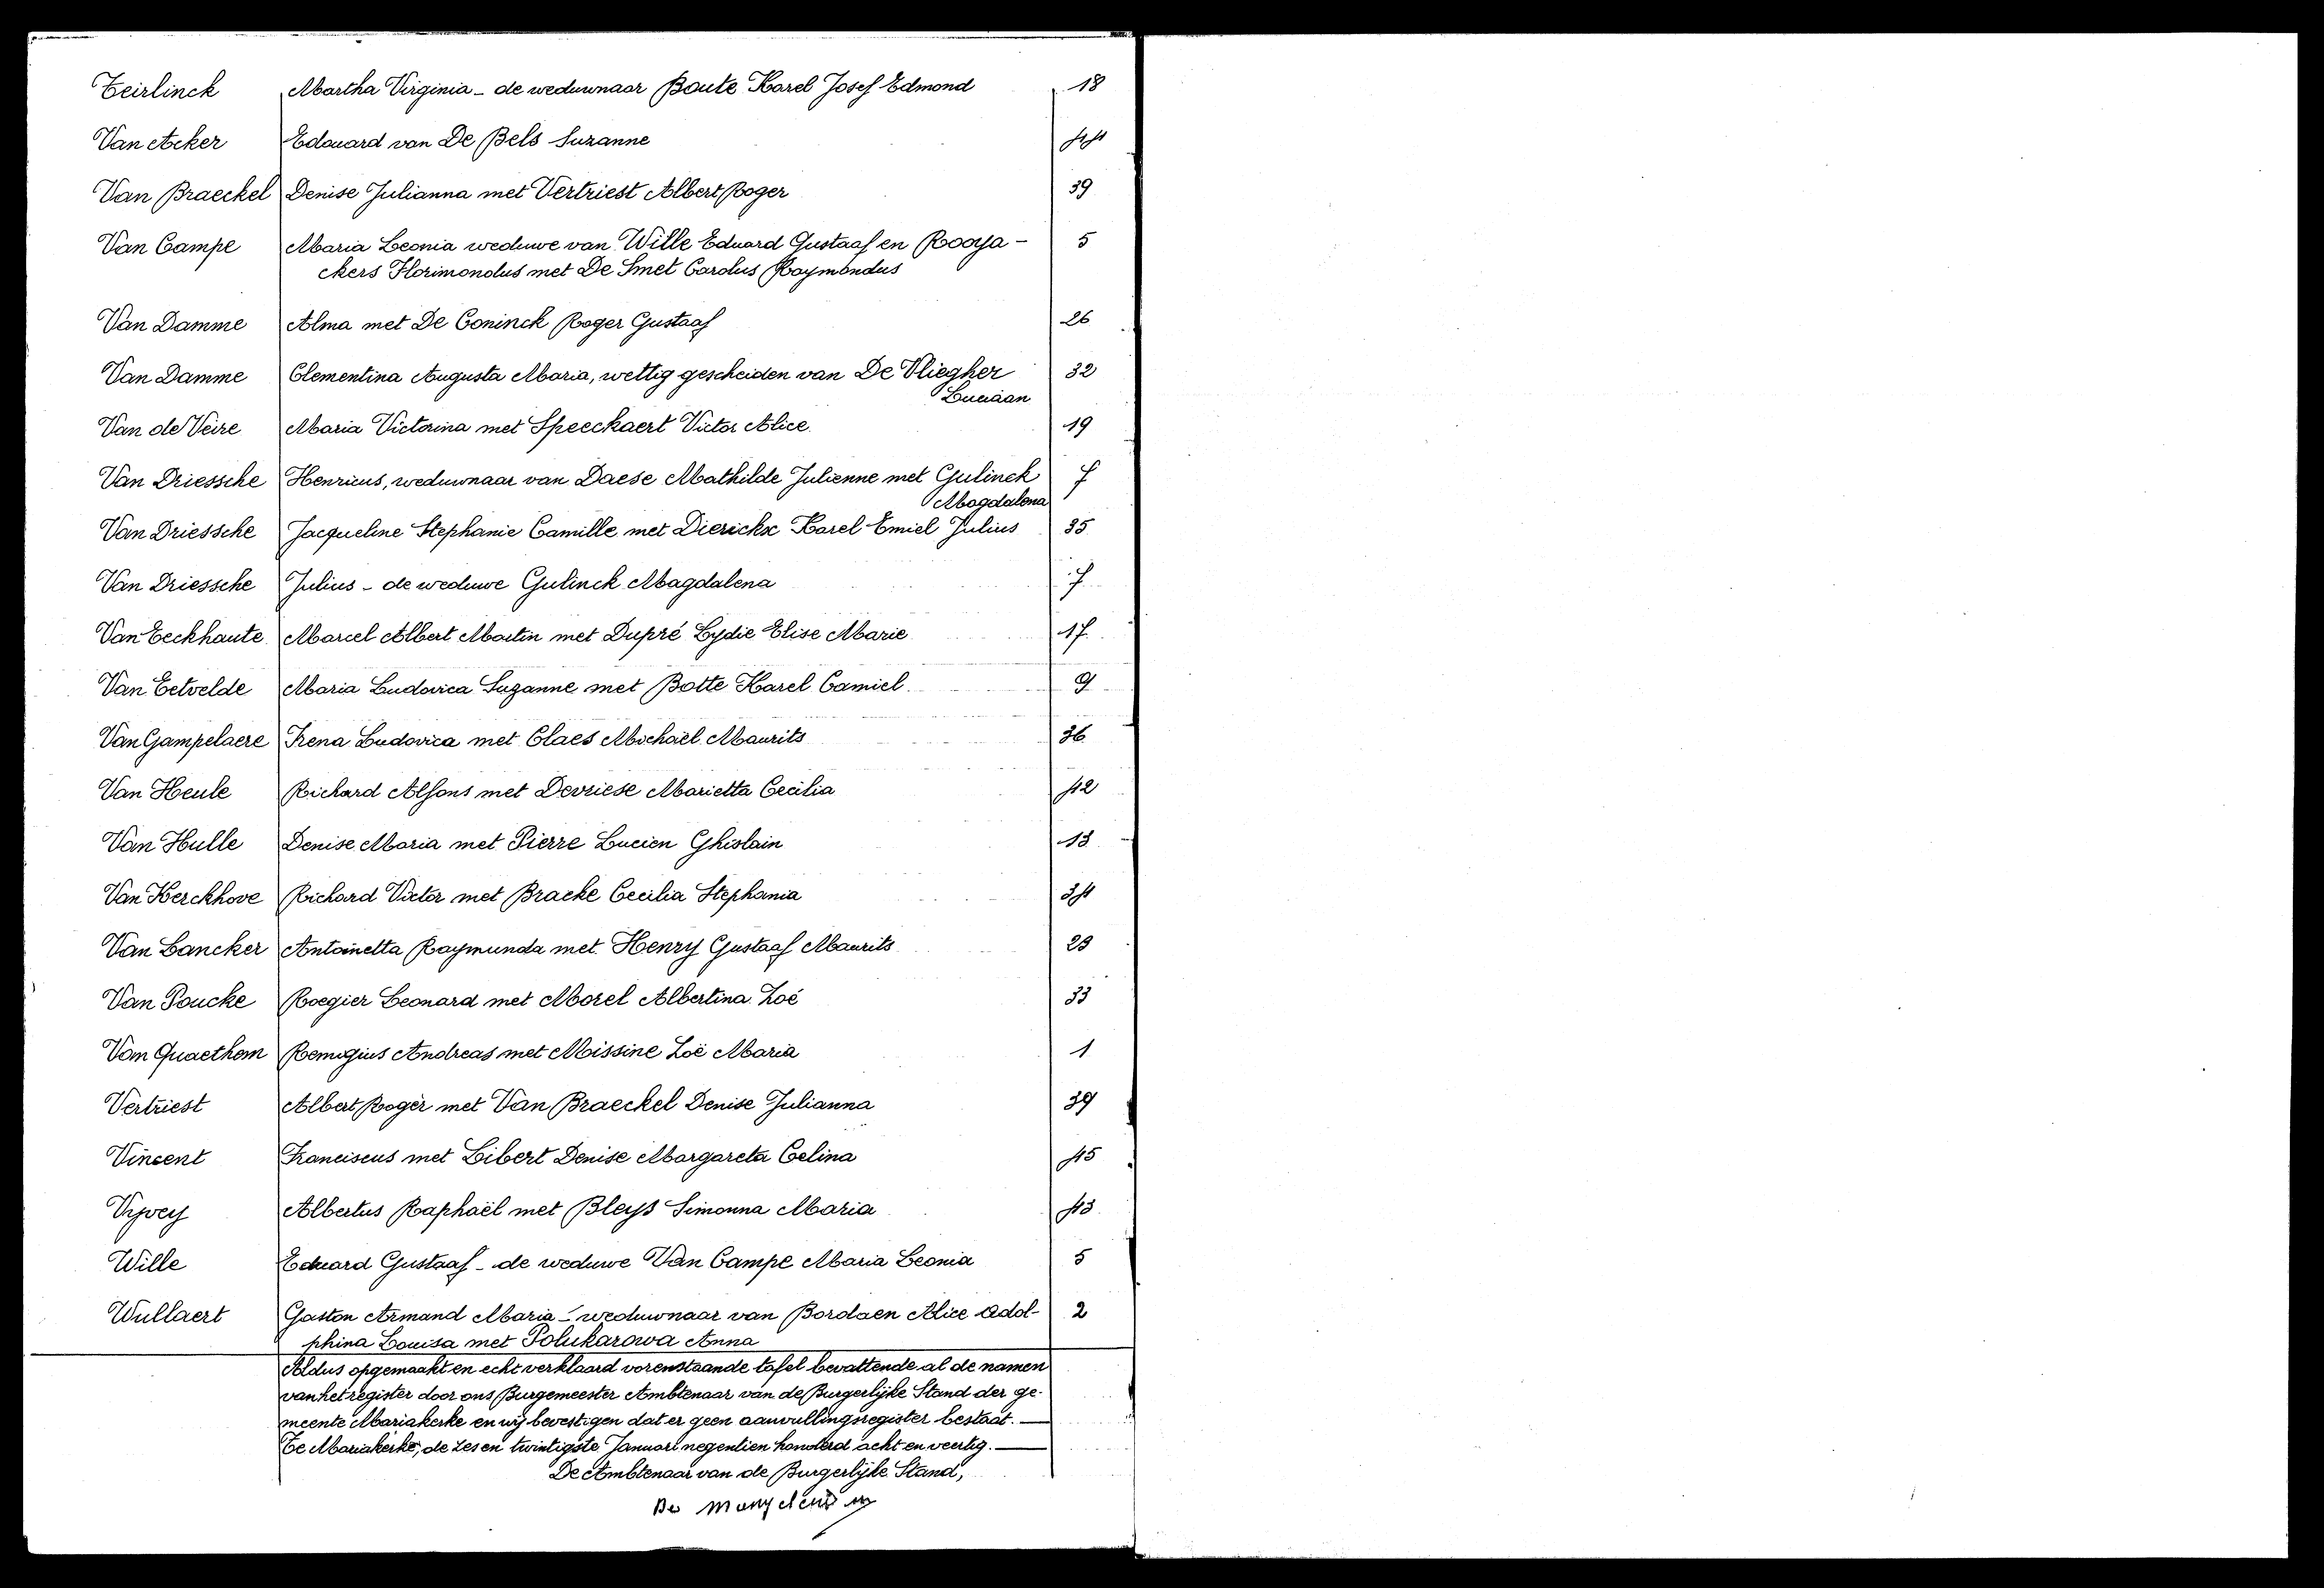 Teirlinck Martha Virginia - de weduwnaar Boute Karel Josef Edmond 18
Van Acker Edouard van De Bels Suzanne 44
Van Braeckel Denise Julianna met Vertriest Albert Roger 39
Van Campe Maria Leonia weduwe van Wille Eduard Gustaaf en Rooya- 5
ckers Florimondus met De Smet Carolus Raymondus
Van Damme Alma met De Coninck Roger Gustaaf 26
Van Damme Clementina Augusta Maria, wettig gescheiden van De Vliegher 32
Luciaan
Van de Veire Maria Victorina met Speeckaert Victor Alice 19
Van Driessche Henricus, weduwnaar van Daese Mathilde Julienne met Gulinck 7
Magdalena
Van Driessche Jacqueline Stephanie Camille met Dierickx Karel Emiel Julius 35
Van Driessche Julius - de weduwe Gulinck Magdalena 7
Van Eeckhaute Marcel Albert Martin met Dupré Lydie Elise Marie 17
Van Eetvelde Maria Ludovica Suzanne met Botte Karel Camiel 9
Van Gampelaere Irena Ludovica met Claes Michaël Maurits 36
Van Heule Richard Alfons met Devriese Marietta Cecilia 42
Van Hulle Denise Maria met Pierre Lucien Ghislain 13
Van Kerckhove Richard Victor met Bracke Cecilia Stephania 34
Van Lancker Antoinetta Raymunda met Henry Gustaaf Maurits 23
Van Poucke Roegier Leonard met Morel Albertina Zoé 33
Van Quaethem Remigius Andreas met Missine Zoë Maria 1
Vertriest Albert Roger met Van Braeckel Denise Julianna 39
Vincent Franciscus met Libert Denise Margareta Celina 45
Vyvey Albertus Raphaël met Bleys Simonna Maria 43
Wille Eduard Gustaaf - de weduwe Van Campe Maria Leonia 5
Wullaert Gaston Armand Maria - weduwnaar van Bordaen Alice Adol- 2
phina Louisa met Polukarowa Anna
Aldus opgemaakt en echt verklaard vorenstaande tafel bevattende al de namen
van het register door ons Burgemeester Ambtenaar van de Burgerlijke Stand der ge-
meente Mariakerke en wij bevestigen dat er geen aanvullingsregister bestaat.
Te Mariakerke, de zes en twintigste Januari negentien honderd acht en veertig.
De Ambtenaar van de Burgerlijke Stand,